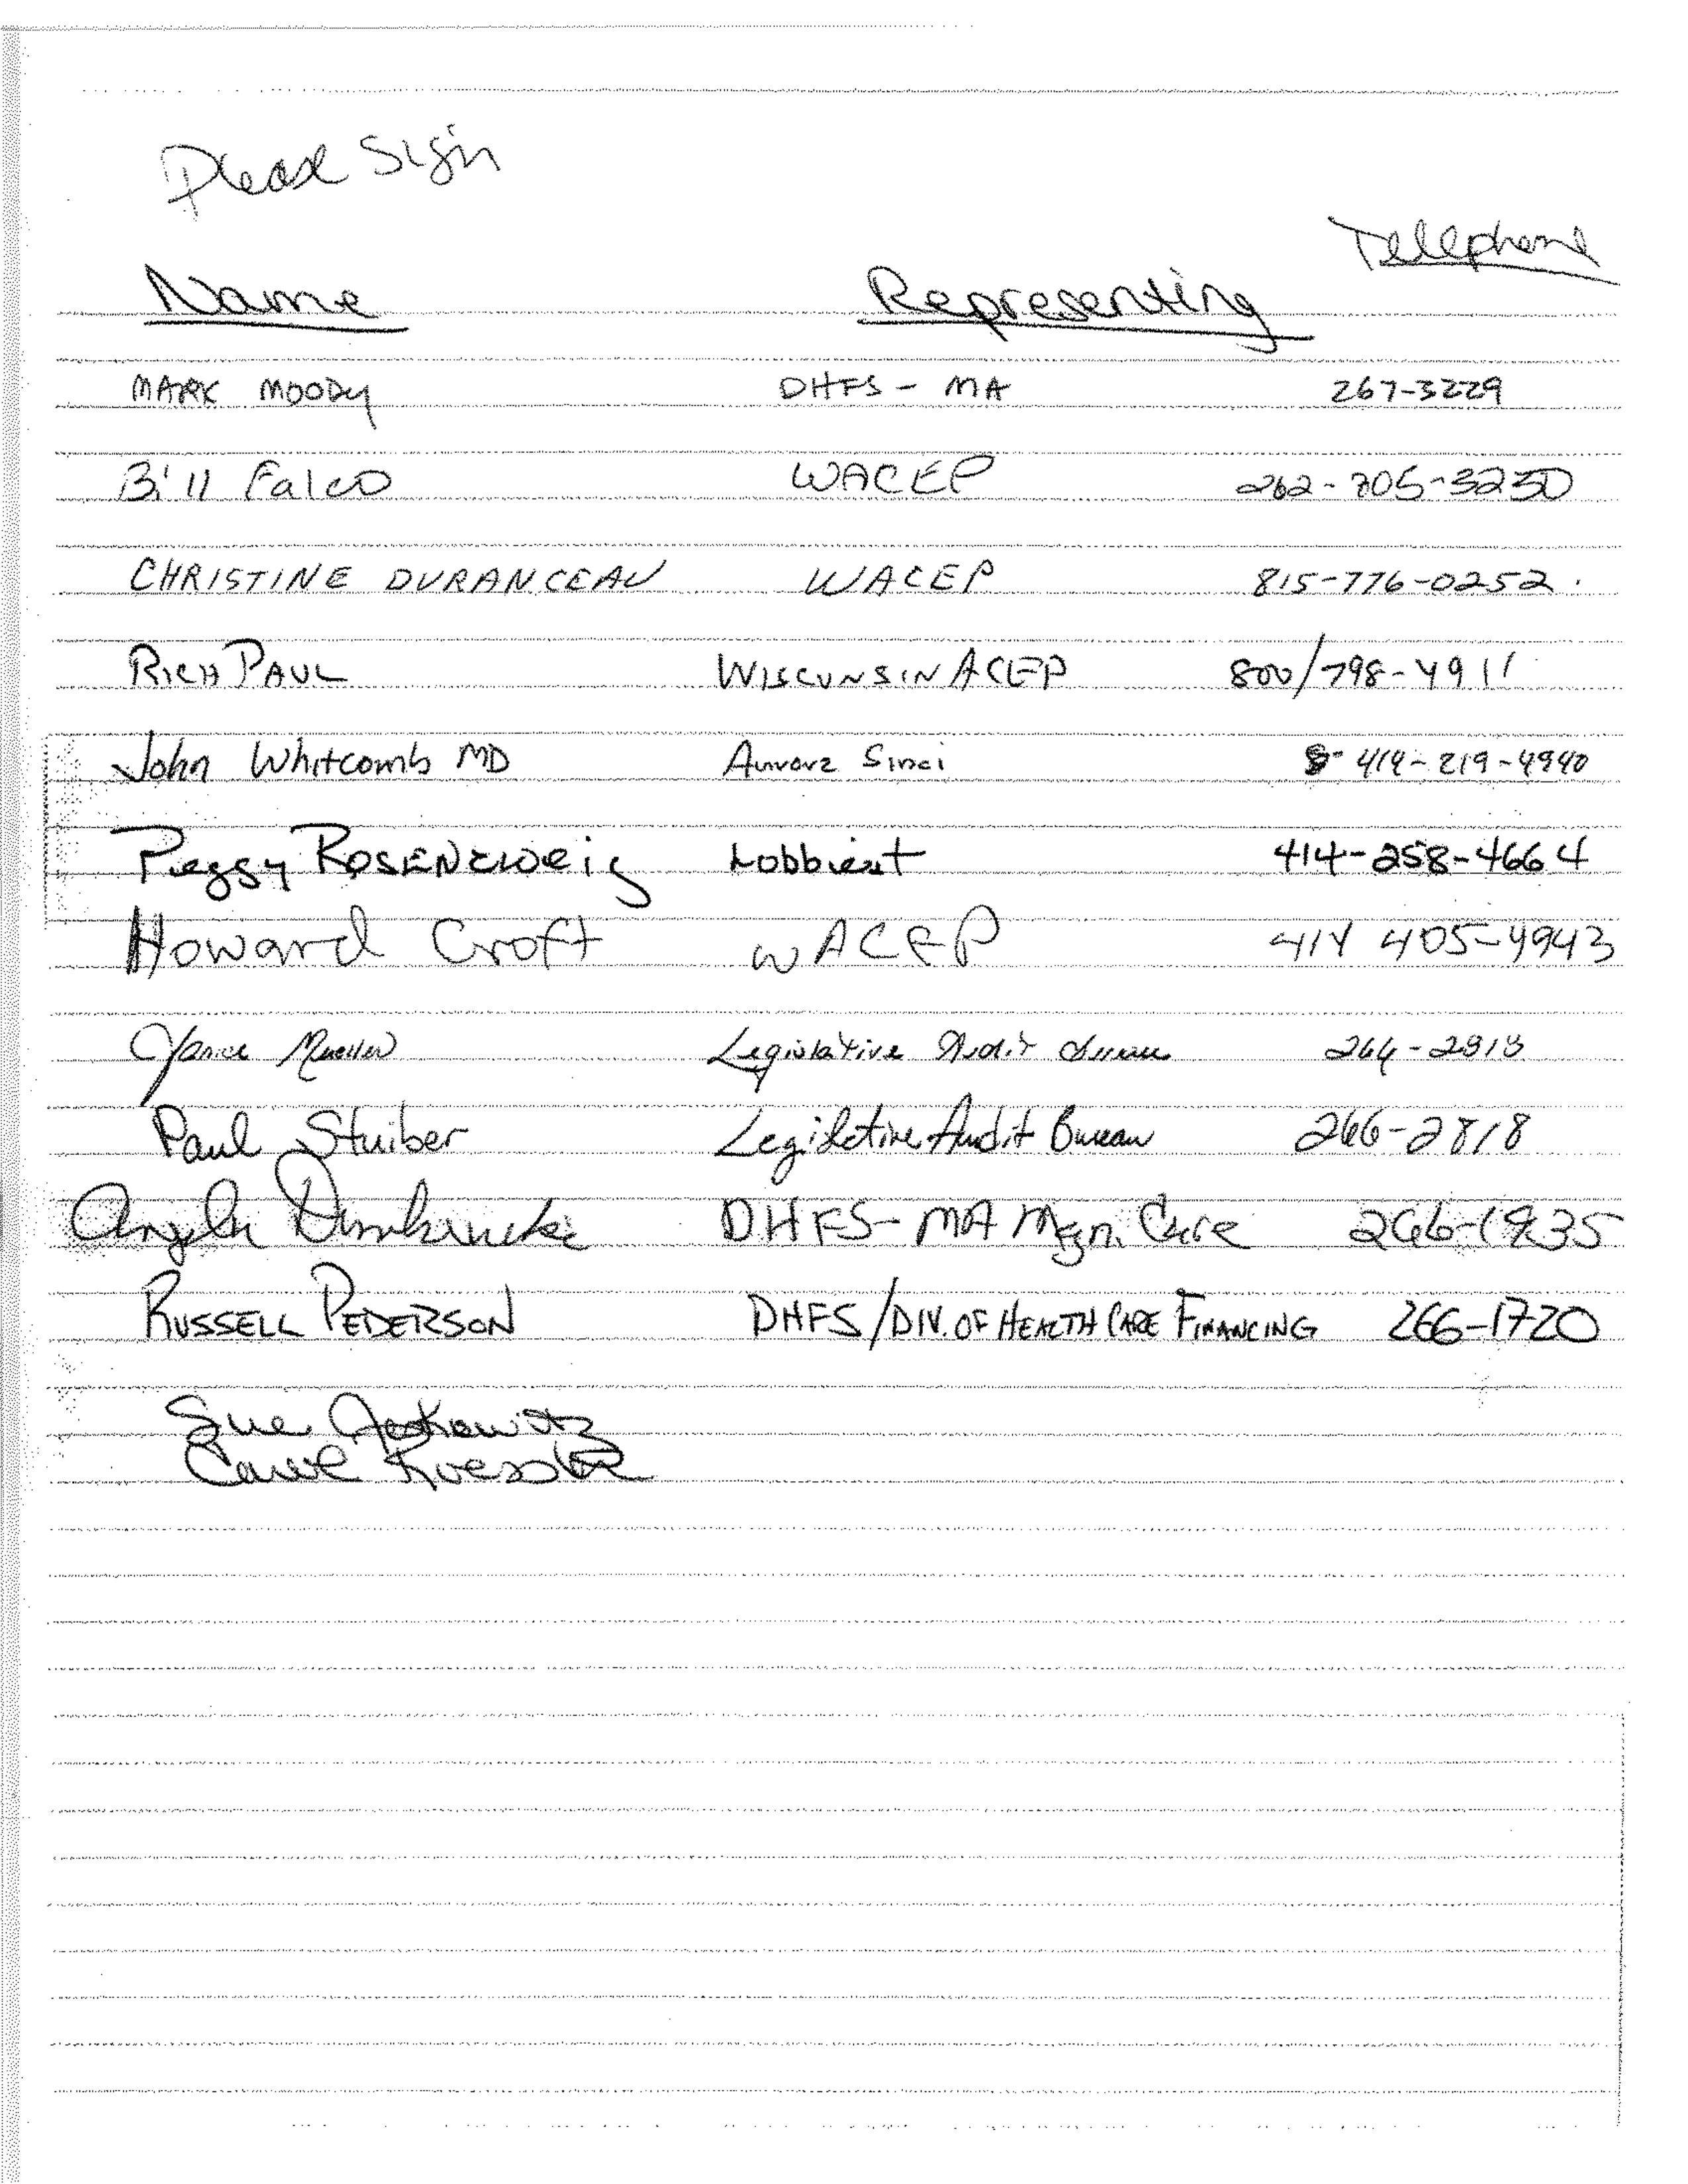 Please Sign
Telephone
Name Representing
MARK MOODY DHFS - MA 267-3229
Bill Falco WACEP 262-705-3250
CHRISTINE DURANCEAU WACEP 815-776-0252.
RICH PAUL WISCONSIN ACEP 800/798-4911
John Whitcomb MD Aurora Sinai 414-219-4940
Peggy ROSENZWEIG Lobbiest 414-258-4664
Howard Croft WACEP 414 405-4943
Janice Mueller Legislative Audit Bureau 266-2818
Paul Stuiber Legislative Audit Bureau 266-2818
Angela DHFS - MA Mgn. Care
RUSSELL PEDERSON DHFS/DIV. OF HEALTH CARE FINANCING 266-1720
Sue
Carol